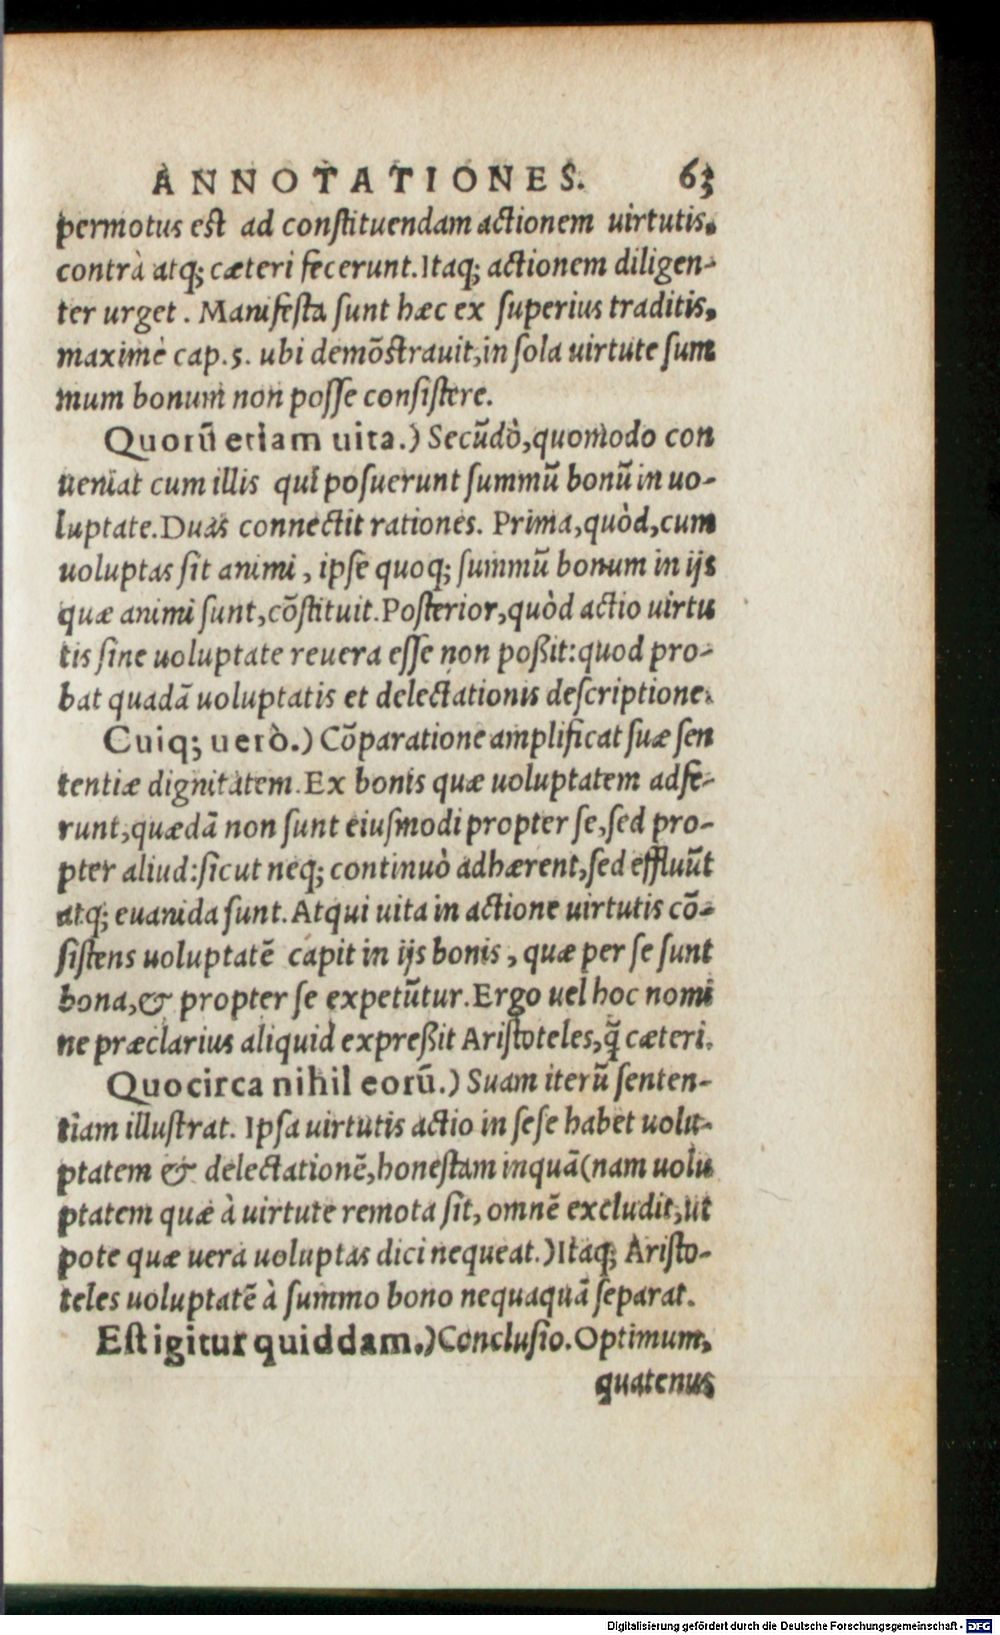 ANNOTATIONES. 63
permotus est ad constituendam actionem uirtutis,
contrà atq; cæteri fecerunt. Itaq; actionem diligen-
ter urget. Manifesta sunt hæc ex superius traditis,
maximè cap. 5. ubi demõstrauit, in sola uirtute sum
mum bonum non posse consistere.
Quorũ etiam uita.) Secũdò, quomodo con
ueniat cum illis qui posuerunt summũ bonũ in uo-
luptate. Duas connectit rationes. Prima, quòd, cum
uoluptas sit animi, ipse quoq; summũ bonum in ijs
quæ animi sunt, cõstituit. Posterior, quòd actio uirtu
tis sine uoluptate reuera esse non poßit: quod pro-
bat quadã uoluptatis et delectationis descriptione.
Cuiq; uerò.) Cõparatione amplificat suæ sen
tentiæ dignitatem. Ex bonis quæ uoluptatem adfe-
runt, quædã non sunt eiusmodi propter se, sed pro-
pter aliud: sicut neq; continuò adhærent, sed effluũt
atq; euanida sunt. Atqui uita in actione uirtutis cõ-
sistens uoluptatẽ capit in ijs bonis, quæ per se sunt
bona, & propter se expetũtur. Ergo uel hoc nomi
ne præclarius aliquid expreßit Aristoteles, q̃ cæteri.
Quocirca nihil eorũ.) Suam iterũ senten-
tiam illustrat. Ipsa uirtutis actio in sese habet uolu-
ptatem & delectationẽ, honestam inquã (nam uolu
ptatem quæ à uirtute remota sit, omnẽ excludit, ut
pote quæ uera uoluptas dici nequeat.) Itaq; Aristo-
teles uoluptatẽ à summo bono nequaquã separat.
Est igitur quiddam.) Conclusio. Optimum,
quatenus
Digitalisierung gefördert durch die Deutsche Forschungsgemeinschaft - DFG